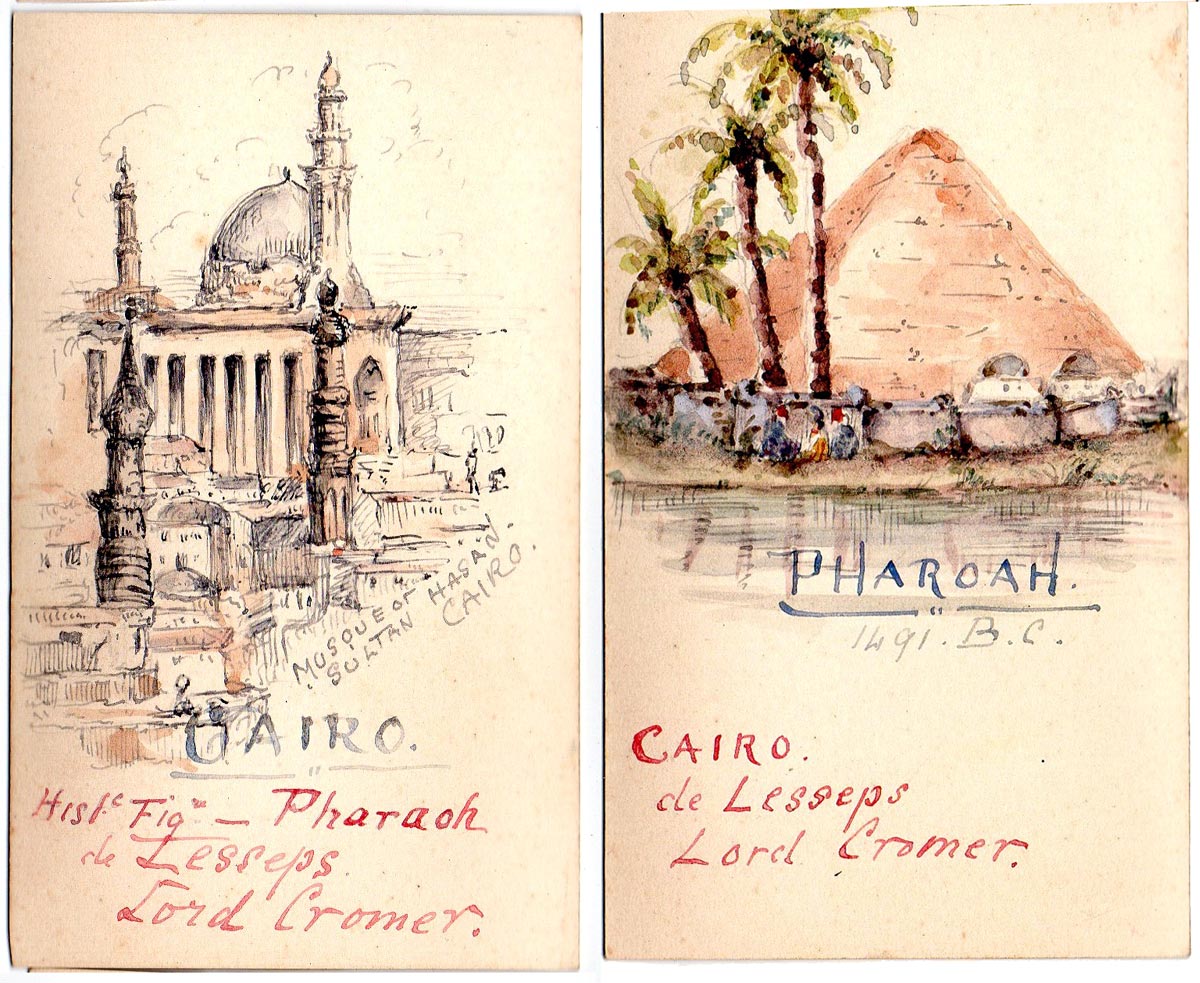 MOSQUE OF
SULTAN HASAN
CAIRO.
CAIRO.
Histc Figre — Pharaoh
de Lesseps
Lord Cromer.
PHAROAH.
1491. B.C.
CAIRO.
de Lesseps
Lord Cromer.